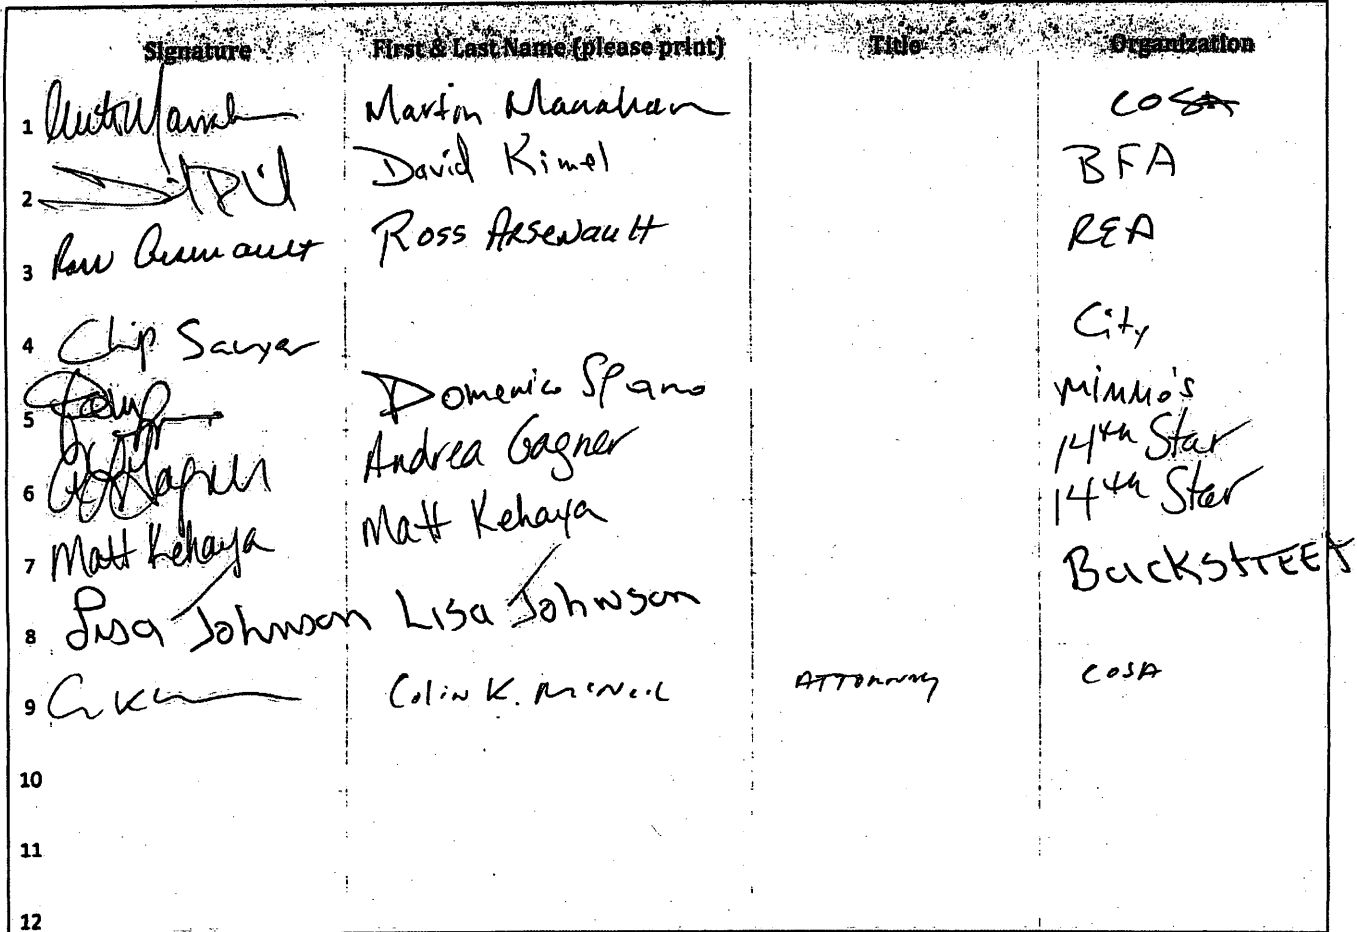 Signature First & Last Name (please print) Title Organization
1 Martin Manahan COSA
2 David Kimel BFA
3 Ross Arsenault Ross Arsenault REA
4 Chip Sawyer City
5 Domenico Spano Mimmo's
6 Andrea Gagner 14th Star
7 Matt Kehaya Matt Kehaya 14th Star
8 Lisa Johnson Lisa Johnson BackstreeT
9 Colin K. McNeil ATTORNEY COSA
10
11
12